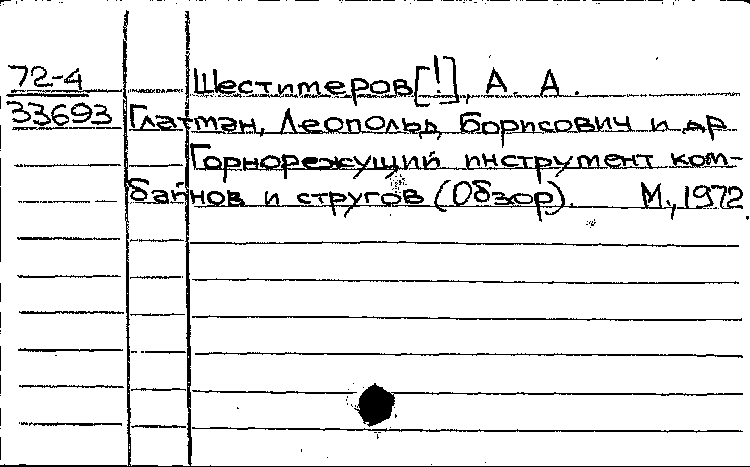 72-4 Шестимеров[!], А. А.
33693 Глатман, Леопольд Борисович и др
Горнорежущий инструмент ком-
байнов и стругов (Обзор). М., 1972.